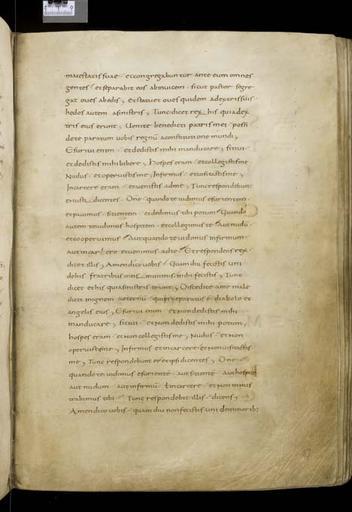 maiestatis suae · et congregabuntur ante eum omnes
gentes · et separabit eos abinuicem · sicut pastor segre
gat oues abedis, et statuet oues quidem adextris suis
hedos autem asinistris, Tunc dicet rex his qui adex
tris eius erunt, Uenite benedicti patris mei possi
dete paratum uobis regnum aconstitutione mundi,
Esuriui enim · et dedistis mihi manducare, sitiui ·
et dedistis mihi bibere, hospes eram · et collegistis me
Nudus · et operuistis me, Infirmus · et uisitastis me,
Incarcere eram · et uenistis adme, Tunc respondebunt
ei iusti dicentes · Dne · quando te uidimus esurientem ·
et pauimus · sitientem · et dedimus tibi potum · Quando
autem te uidimus hospitem · et collegimus te · aut nudum
et cooperuimus · Aut quando te uidimus infirmum ·
aut incarcere · et uenimus adte · Et respondens rex
dicet illis, Amen dico uobis · Quamdiu fecistis uni
de his fratribus meis minimis mihi fecistis, Tunc
dicet et his qui asinistris erunt, Discedite ame male
dicti in ignem aeternum qui praeparatus est diabolo et
angelis eius, Esuriui enim · et non dedistis mihi
manducare, sitiui · et non dedistis mihi potum,
hospes eram · et non collegistis me, Nudus · et non
operuistis me, Infirmus et incarcere · et non uisitastis
me, Tunc respondebunt et ipsi dicentes, Dne
quando te uidimus esurientem · aut sitientem · aut hospitem
aut nudum · aut infirmum · uel incarcere · et non minis
trauimus tibi · Tunc respondebit illis · dicens,
Amen dico uobis · quamdiu non fecistis uni de minoribus